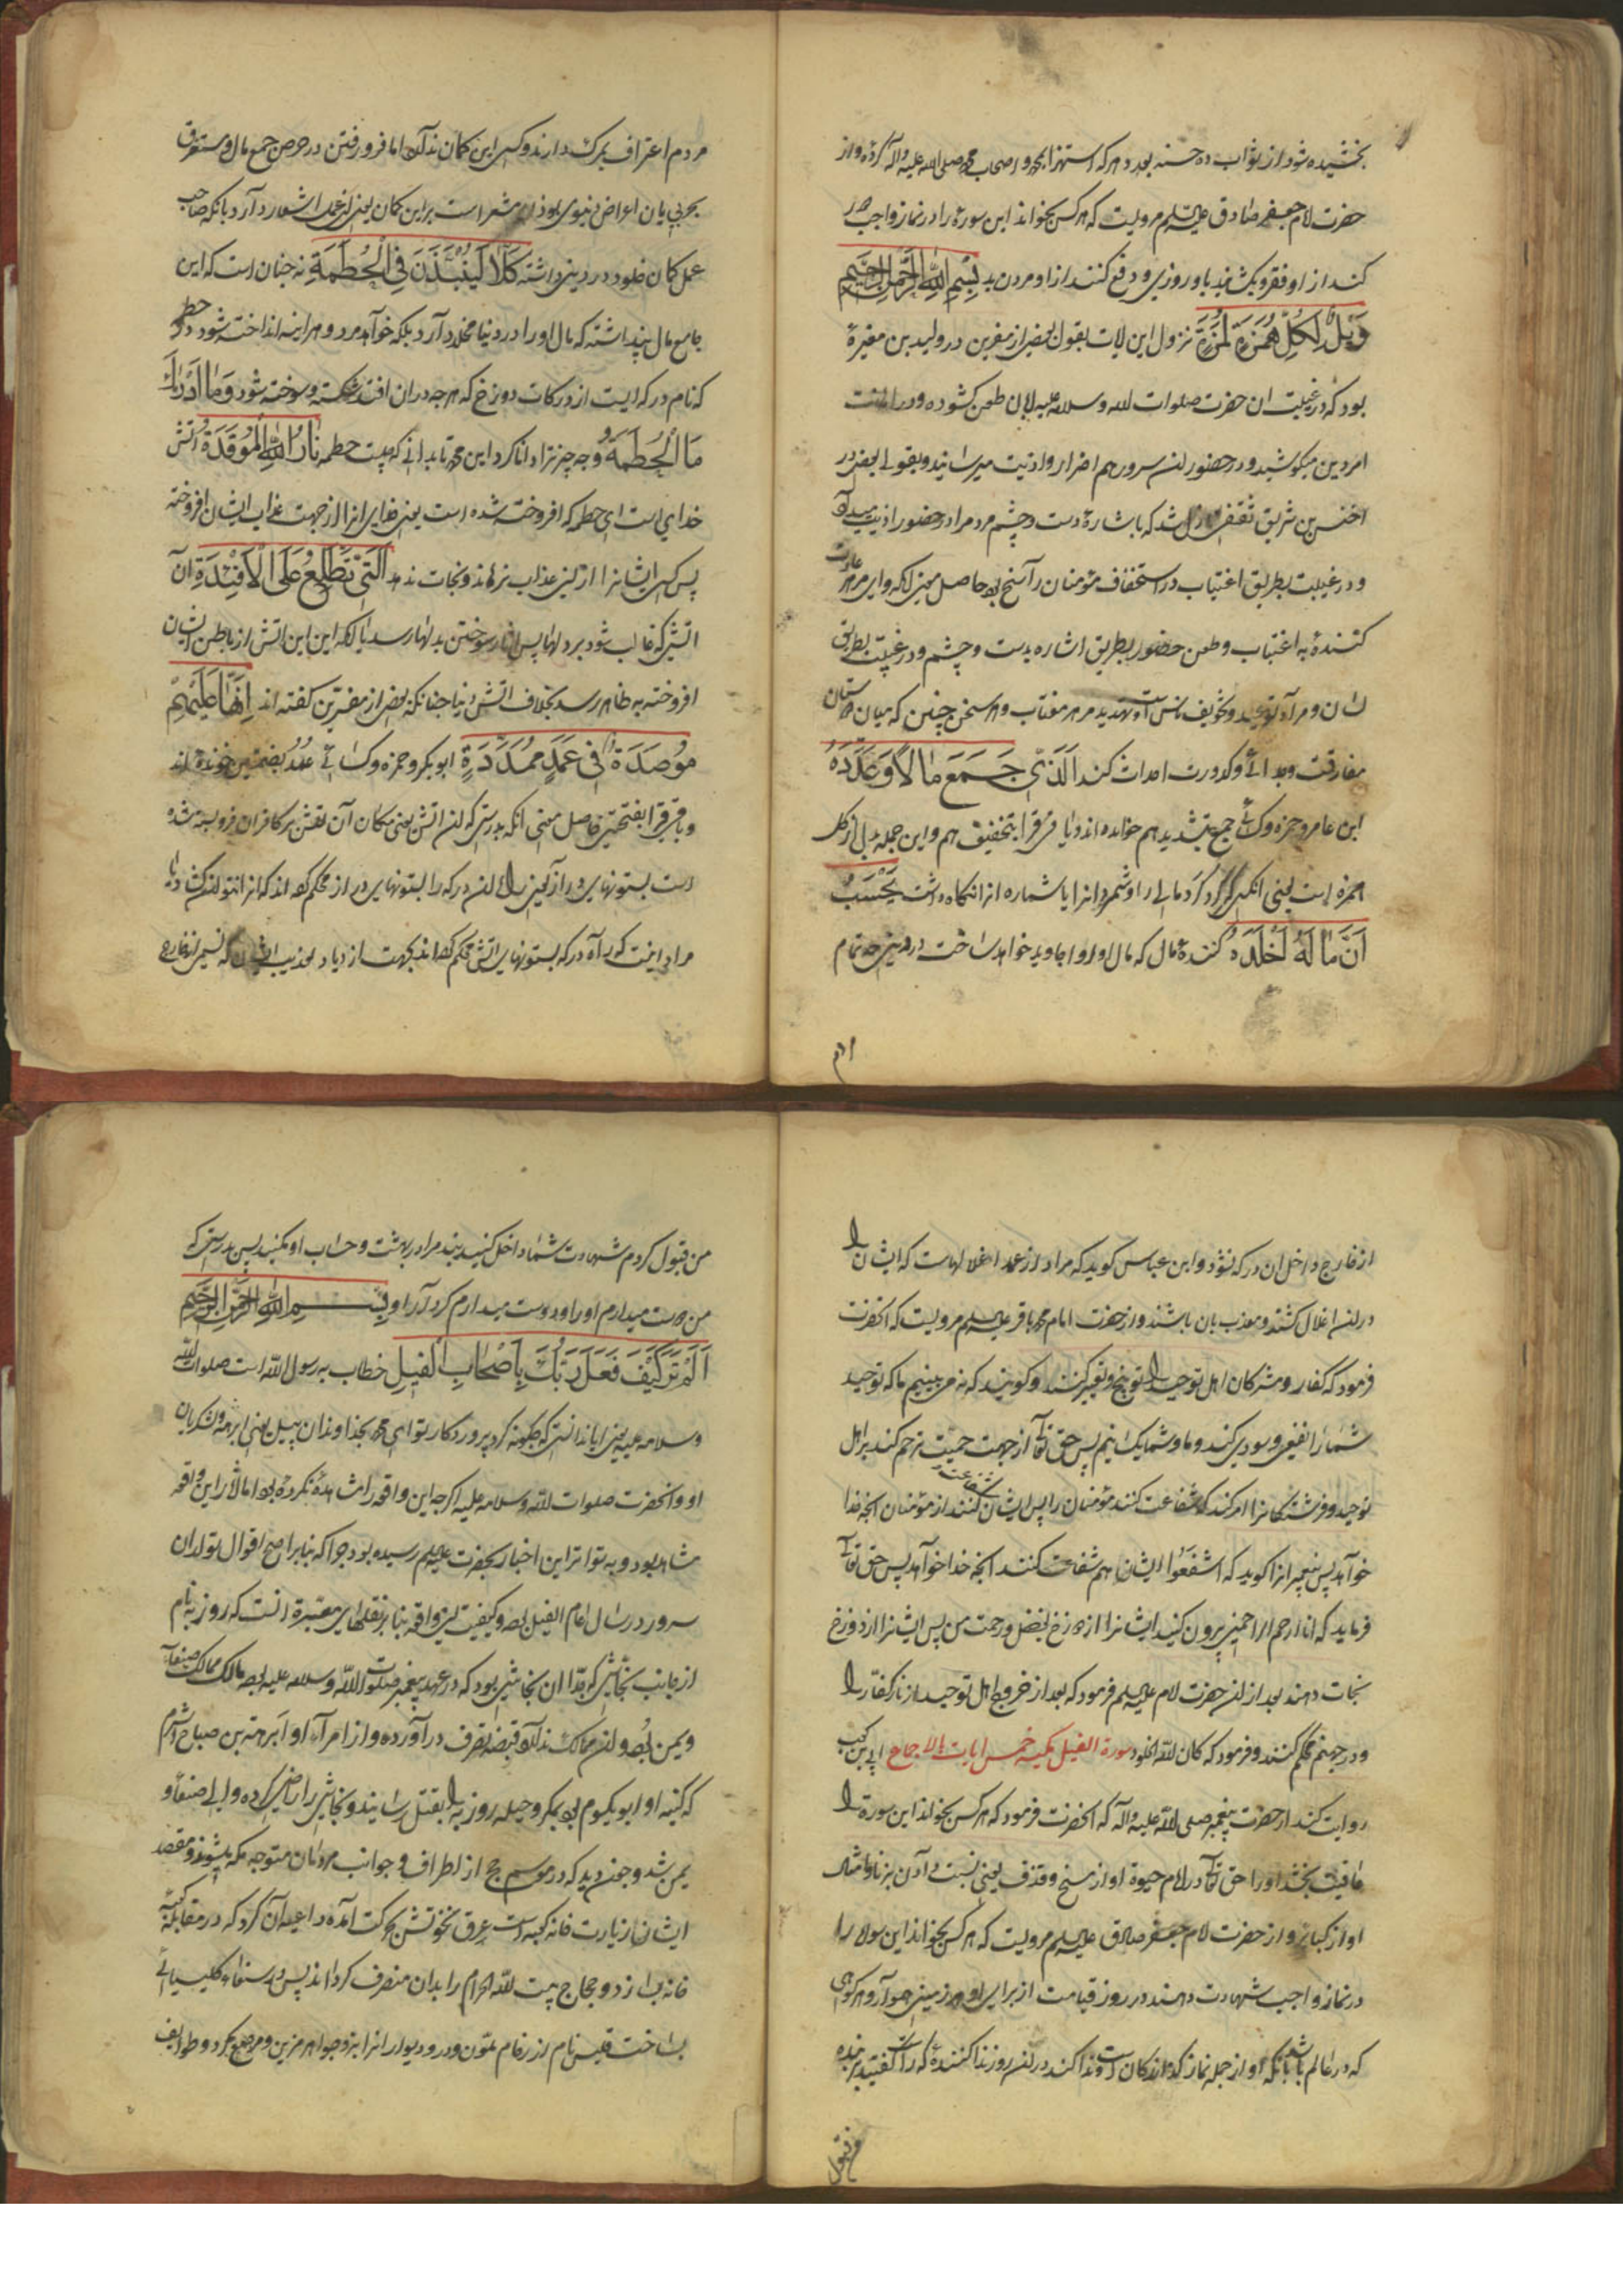 بخشیده شود از ثواب ده حسنه بعدد هر که استهزا بمحمد و اصحاب محمد صلی الله علیه و آله کرده و از
حضرت امام جعفر صادق علیه السلم مرویست که هر کس بخواند این سوره را در نماز واجب دور
کند از او فقر و بکشاند باو روزی و دفع کنند از او مردن بد بسم الله الرحمن الرحیم
وَیْلٌ لِکُلِّ هُمَزَةٍ لُمَزَةٍ نزول این ایات بقول بعضی از مفسرین در ولید بن مغیرة
بود که در غیبت ان حضرت صلوات الله وسلامه علیه زبان طعن کشوده و در
امر دین میکوشید و در حضور ان سرور هم اضرار و اذیت میرسانید و بقولی بعضی در
اخنس بن شریق ثقفی نازل شد که باشارهٔ دست و چشم مردم را در حضور اذیت میداد
و در غیبت بطریق اغتیاب در استخفاف مؤمنان راسخ بود حاصل معنی آنکه وای مر هر عادت
کنندهٔ به اغتیاب و طعن حضور بطریق اشاره بدست و چشم و در غیبت بطریق
لسان و مراد توعید و تخویف ناس است و تهدید مر هر مغتاب و هر سخن چینی که میان دوستان
مفارقت و جدائی و کدورت احداث کند اَلَّذی جَمَعَ مَالًا وَعَدَّدَهُ
ابن عامر و حمزه و کسائی جمع بتشدید هم خوانده اند و باقی قرا بتخفیف هم و این جمله بدل از کل
همزه است یعنی انکسی که گرد کرد مالی را و شمرد انرا یا شماره از انکاه داشت یَحْسَبُ
اَنَّ مَالَهُ اَخْلَدَهُ کنندهٔ مال که مال او او را جاوید خواهد ساخت در دنیی چه تمام
مردم اعتراف بمرک دارند و کسی این کمان ندارد اما فرو رفتن در حرص جمع مال و مستغرق
بحر بی پایان اعراض دنیوی بودن مشعر است بر این کمان یعنی این عمل اشعار دارد بانکه صاحب
عمل کمان خلود در دنیی داشته کَلَّا لَیُنْبَذَنَّ فِی الْحُطَمَةِ نه چنان است که این
جامع مال پنداشته که مال او را در دنیا مخلد دارد بلکه خواهد مرد و هر اینه انداخته شود در حطمه
که نام درکه ایست از درکات دوزخ که هر چه در ان افتد شکسته و سوخته شود وَمَا اَدْرَاكَ
مَا الْحُطَمَةُ و چه چیز ترا دانا کرد این محمد تا بدانی که چیست حطمه نَارُ اللّٰهِ الْمُوقَدَةُ اتش
خدایی است ای حطمه که افروخته شده است یعنی خدای انرا از جهت عذاب ایشان افروخته
پس کسی ایشانرا از این عذاب نرهاند و نجات ندهد اَلَّتِی تَطَّلِعُ عَلَی الْاَفْئِدَةِ آن
اتشی که غالب شود بر دلها پس اثار سوختن بدلها رسد یا انکه این این اتش از باطن ایشان
افروخته به ظاهر رسد بخلاف اتش دنیا چنانکه بعضی از مفسرین کفته اند اِنَّهَا عَلَیْهِمْ
مُوصَدَةٌ فِی عَمَدٍ مُمَدَّدَةٍ ابوبکر و حمزه و کسائی عُمُد بضمتین خوانده اند
و باقی قرا بفتحتین حاصل معنی انکه بدرستی که ان اتش یعنی مکان آن تفتش بر کافران فرو بسته شده
است بستونهای دراز یعنی را ان درکه را بستونهای دراز محکم کرده اند که انرا نتوانند کشاد یا
مراد اینست که درهای درکه بستونهای اتش محکم کرده اند بجهت ازدیاد تعذیب ایشان که نسیمی از خارج
از خارج داخل ان درکه نشود و ابن عباس کوید که مراد از عمد اغلالهاست که ایشان را
در ان اغلال کشند و معذب بان باشند و از حضرت امام محمد باقر علیه السلم مرویست که انحضرت
فرمود که کفار و مشرکان اهل توحید را توبیخ و تعییر کنند و کویند که نمی بینیم ما که توحید
شما را نفعی و سودی کند و ما و شما یکسانیم پس حق تعالی از جهت حمیت ترحم کند بر اهل
توحید و فرشتکانرا امر کند که شفاعت کنند مؤمنان را پس ایشان شفاعت کنند از مؤمنان انچه خدا
خواهد پس پیغمبرانرا کوید که اشفَعُوا ایشان هم شفاعت کنند انچه خدا خواهد پس حق تعالی
فرماید که انا ارحم الراحمین بیرون کنید ایشانرا از دوزخ بفضل و رحمت من پس ایشانرا از دوزخ
نجات دهند بعد از ان حضرت امام علیه السلم فرمود که بعد از خروج اهل توحید از نار کفار را
در جهنم محکم کنند و فرمود که کان لله الخلود سورة الفیل مکیه خمس ایات بالاجماع ابی بن کعب
روایت کند از حضرت پیغمبر صلی الله علیه و آله که انحضرت فرمود که هر کس بخواند این سوره را
عافیت بخشد او را حق تعالی در ایام حیوة او از مسخ و قذف یعنی نسبت دادن بزنا و امثال
او از کبایر و از حضرت امام جعفر صادق علیه السلم مرویست که هر کس بخواند این سوره را
در نماز واجب شهادت دهند در روز قیامت از برای او هر زمینی هموار و هر کوهی
که در عالم باشد بانکه او از جمله نماز کذارندکان است و ندا کند در ان روز ندا کنندهٔ که راست کفتید بر بندهٔ
من قبول کردم شهادت شما داخل کنید بنده مرا در بهشت و حساب او مکنید پس بدرستی که
من دوست میدارم او را و دوست میدارم کردار او بسم الله الرحمن الرحیم
اَلَمْ تَرَ کَیْفَ فَعَلَ رَبُّكَ بِاَصْحَابِ الْفِیلِ خطاب به رسول الله است صلوات الله
وسلامه علیه یعنی ایا ندانستی که چکونه کرد پروردکار تو ای محمد بخداوندان پیل یعنی ابرهه و لشکریان
او و انحضرت صلوات الله وسلامه علیه اکرچه این واقعه را مشاهده نکرده بود اما اثار این واقعه
مشاهد بود و به تواتر این اخبار بحضرت علیه السلم رسیده بود چرا که بنابر اصح اقوال تولد ان
سرور در سال عام الفیل بود و کیفیت این واقعه بنابر نقلهای معتبره انست که روزبه نام
از جانب نجاشی که جدّ ان نجاشی بود که در عهد پیغمبر صلوات الله وسلامه علیه بود مالک ممالک صنعاء
و یمن بُود و ان ممالک بقبضه تصرف در آورده و از امراء او ابرهة بن صباح اشرم
که کنیه او ابویکسوم بود بمکر و حیله روزبه را بقتل رسانید و نجاشی را راضی کرده والی صنعاء و
یمن شد و چون دید که در موسم حج از اطراف و جوانب مردمان متوجه مکه میشوند و مقصد
ایشان زیارت خانه کعبه است عرق نخوتش بحرکت آمده داعیه آن کرد که در مقابله کعبه
خانه بسازد و حجاج بیت الله الحرام را بدان منصرف کرداند پس در صنعاء کلیسیائی
بساخت قلیس نام از رخام ملون و در و دیوار انرا بزر و جواهر مزین و مرصع کرد و طوایف